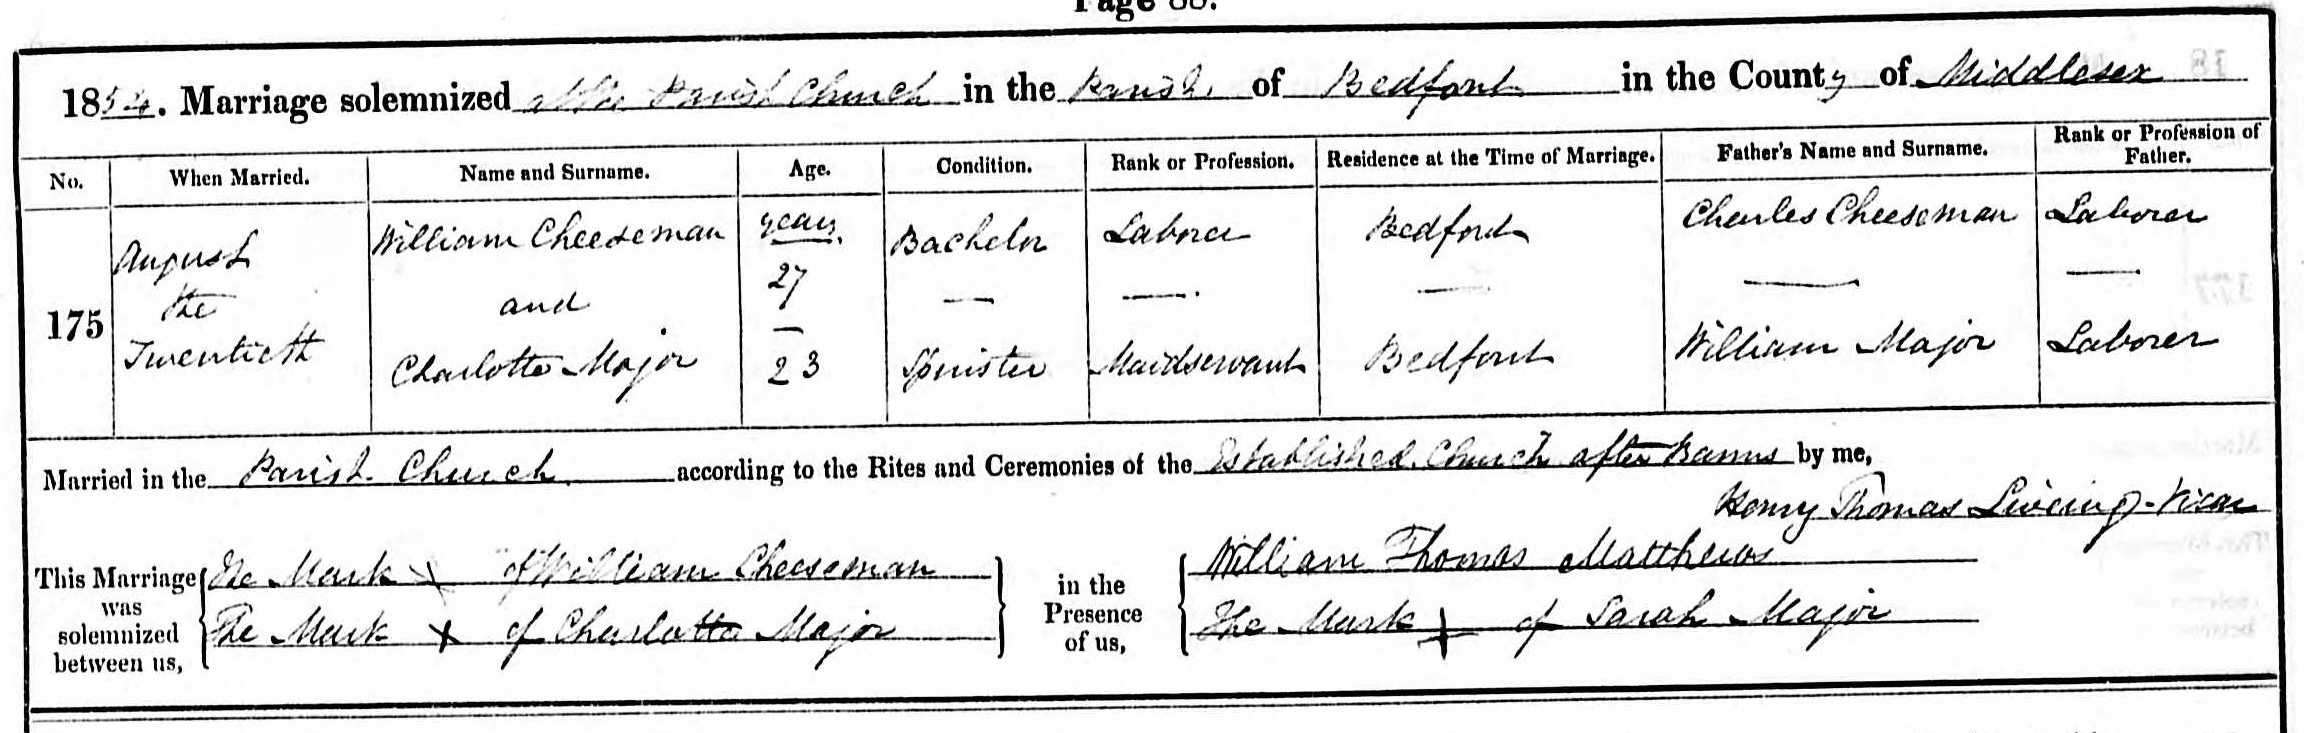 Page 88.
1854. Marriage solemnized at the Parish Church in the Parish of Bedfont in the County of Middlesex
No. When Married. Name and Surname. Age. Condition. Rank or Profession. Residence at the Time of Marriage. Father's Name and Surname. Rank or Profession of Father.
175 August the Twentieth
William Cheeseman years 27 Bachelor Laborer Bedfont Charles Cheeseman Laborer
and — — —. — — —
Charlotte Major 23 Spinster Maidservant Bedfont William Major Laborer
Married in the Parish Church according to the Rites and Ceremonies of the Established Church after Banns by me,
Henry Thomas Liveing - Vicar
This Marriage was solemnized between us,
The Mark X of William Cheeseman
The Mark X of Charlotte Major
in the Presence of us,
William Thomas Matthews
The Mark X of Sarah Major